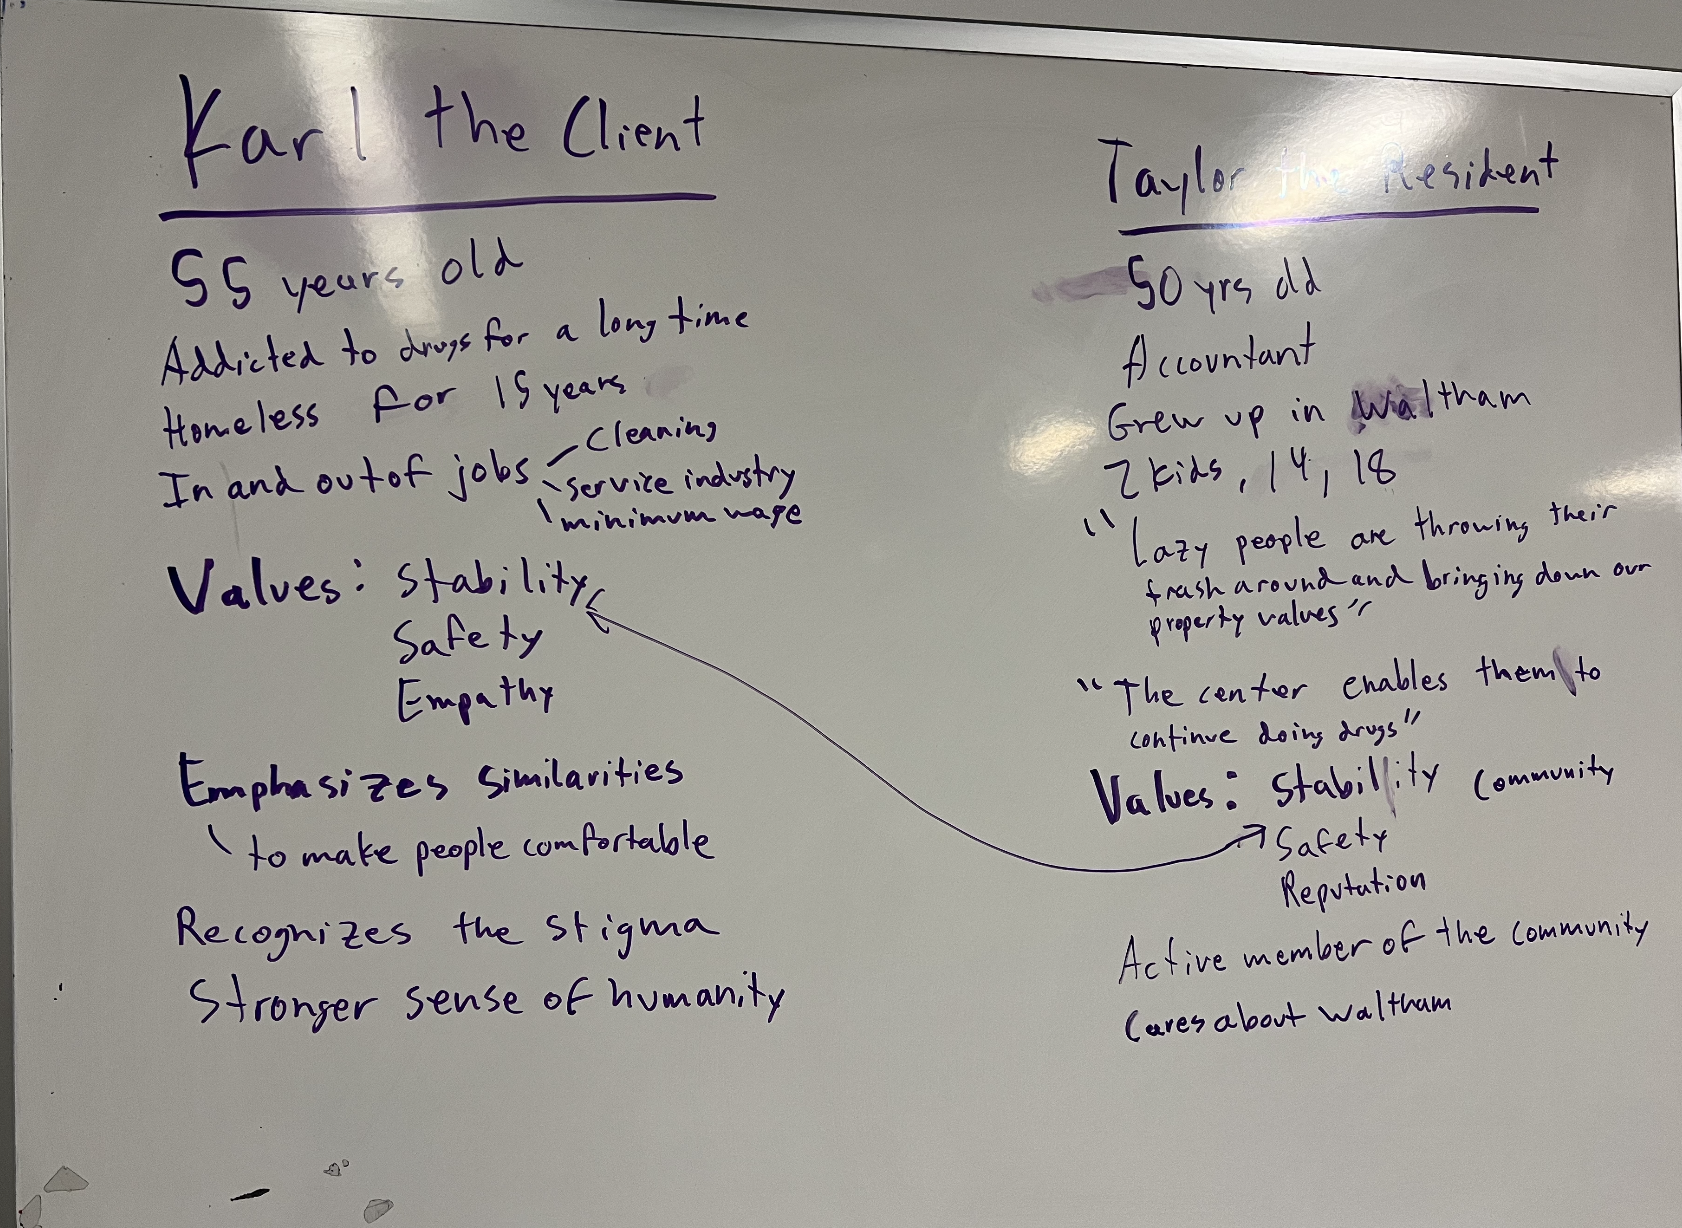 Karl the Client
55 years old
Addicted to drugs for a long time
Homeless for 15 years
In and out of jobs
Cleaning
service industry
minimum wage
Values: Stability
Safety
Empathy
Emphasizes similarities
to make people comfortable
Recognizes the stigma
Stronger sense of humanity
Taylor the Resident
50 yrs old
Accountant
Grew up in Waltham
2 kids, 14, 18
"Lazy people are throwing their
trash around and bringing down our
property values"
"The center enables them to
continue doing drugs"
Values: Stability Community
Safety
Reputation
Active member of the community
Cares about Waltham